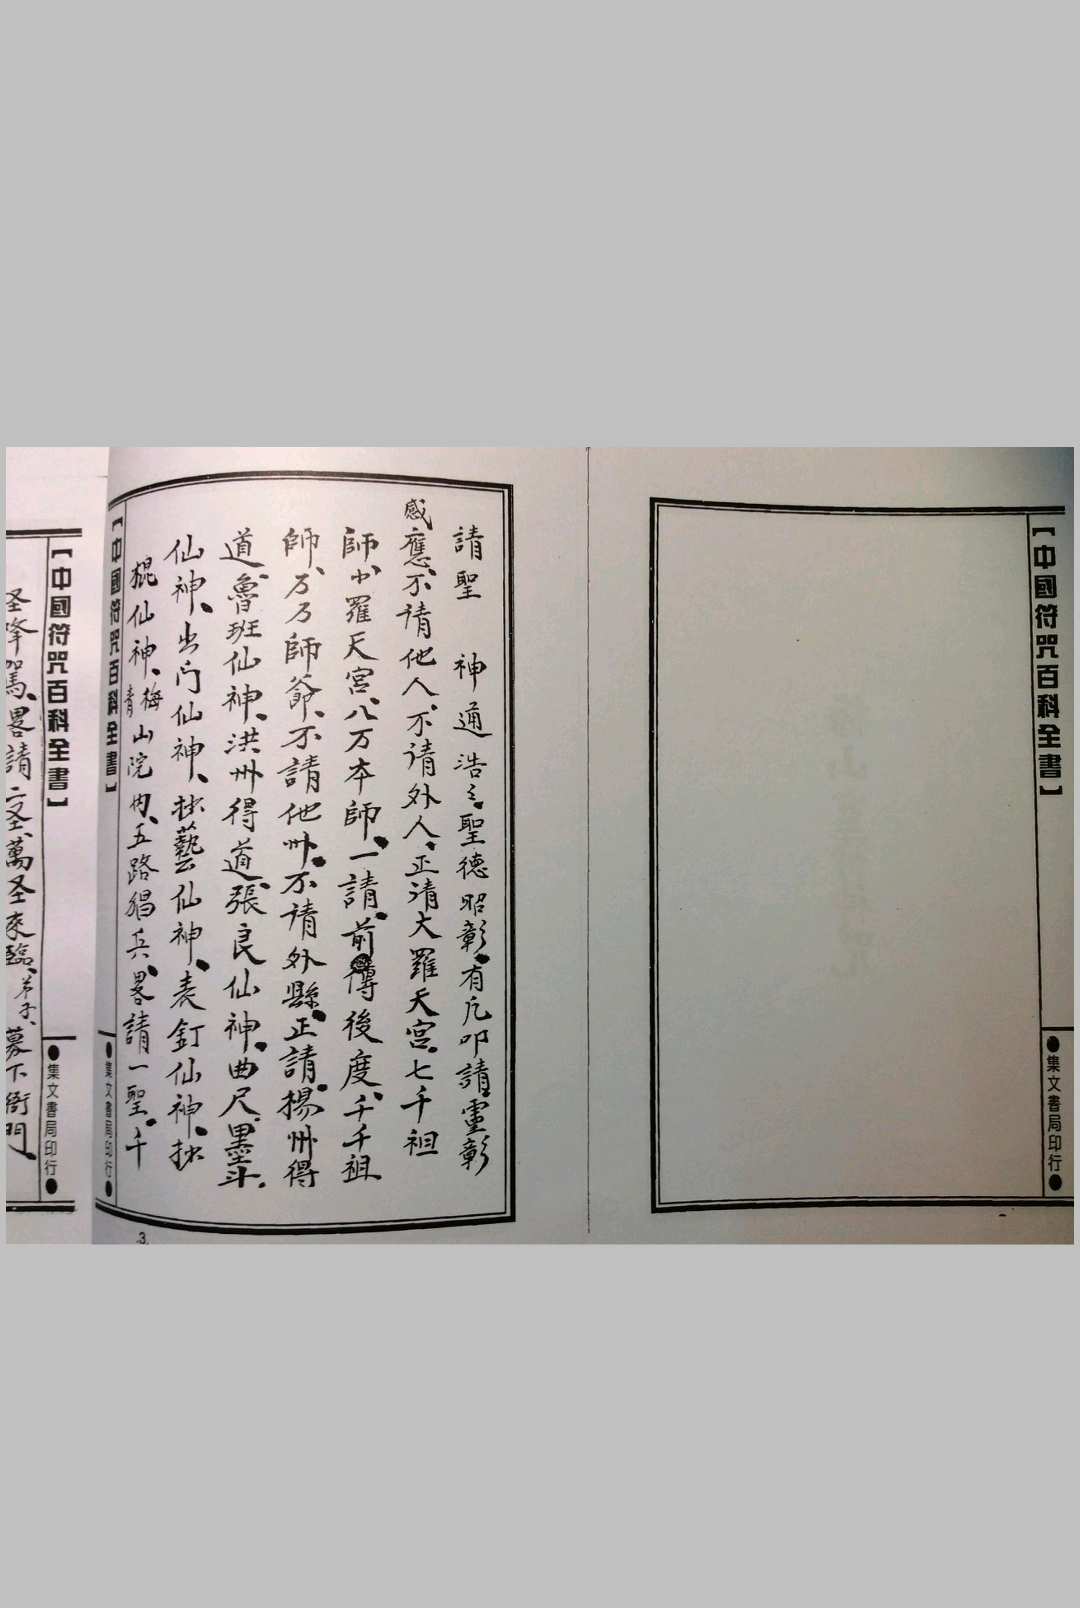 【中國符咒百科全書】
●集文書局印行●
請聖 神通浩々、聖德昭彰、有凡叩請、靈彰
感應、不請他人、不請外人、正請大羅天宮、七千祖
師、小羅天宮、八万本師、一請、前傳後度、千千祖
師、万万師爺、不請他州、不請外縣、正請、揚州得
道、魯班仙神、洪州得道、張良仙神、曲尺、墨斗、
仙神、出门仙神、抄藝仙神、表釘仙神、抄
棍仙神、梅山院内、五路猖兵、畧請一聖、千
青
【中國符咒百科全書】
●集文書局印行●
3
【中國符咒百科全書】
●集文書局印行●
圣降駕、畧請二圣、萬圣來臨、弟子、募下衙門